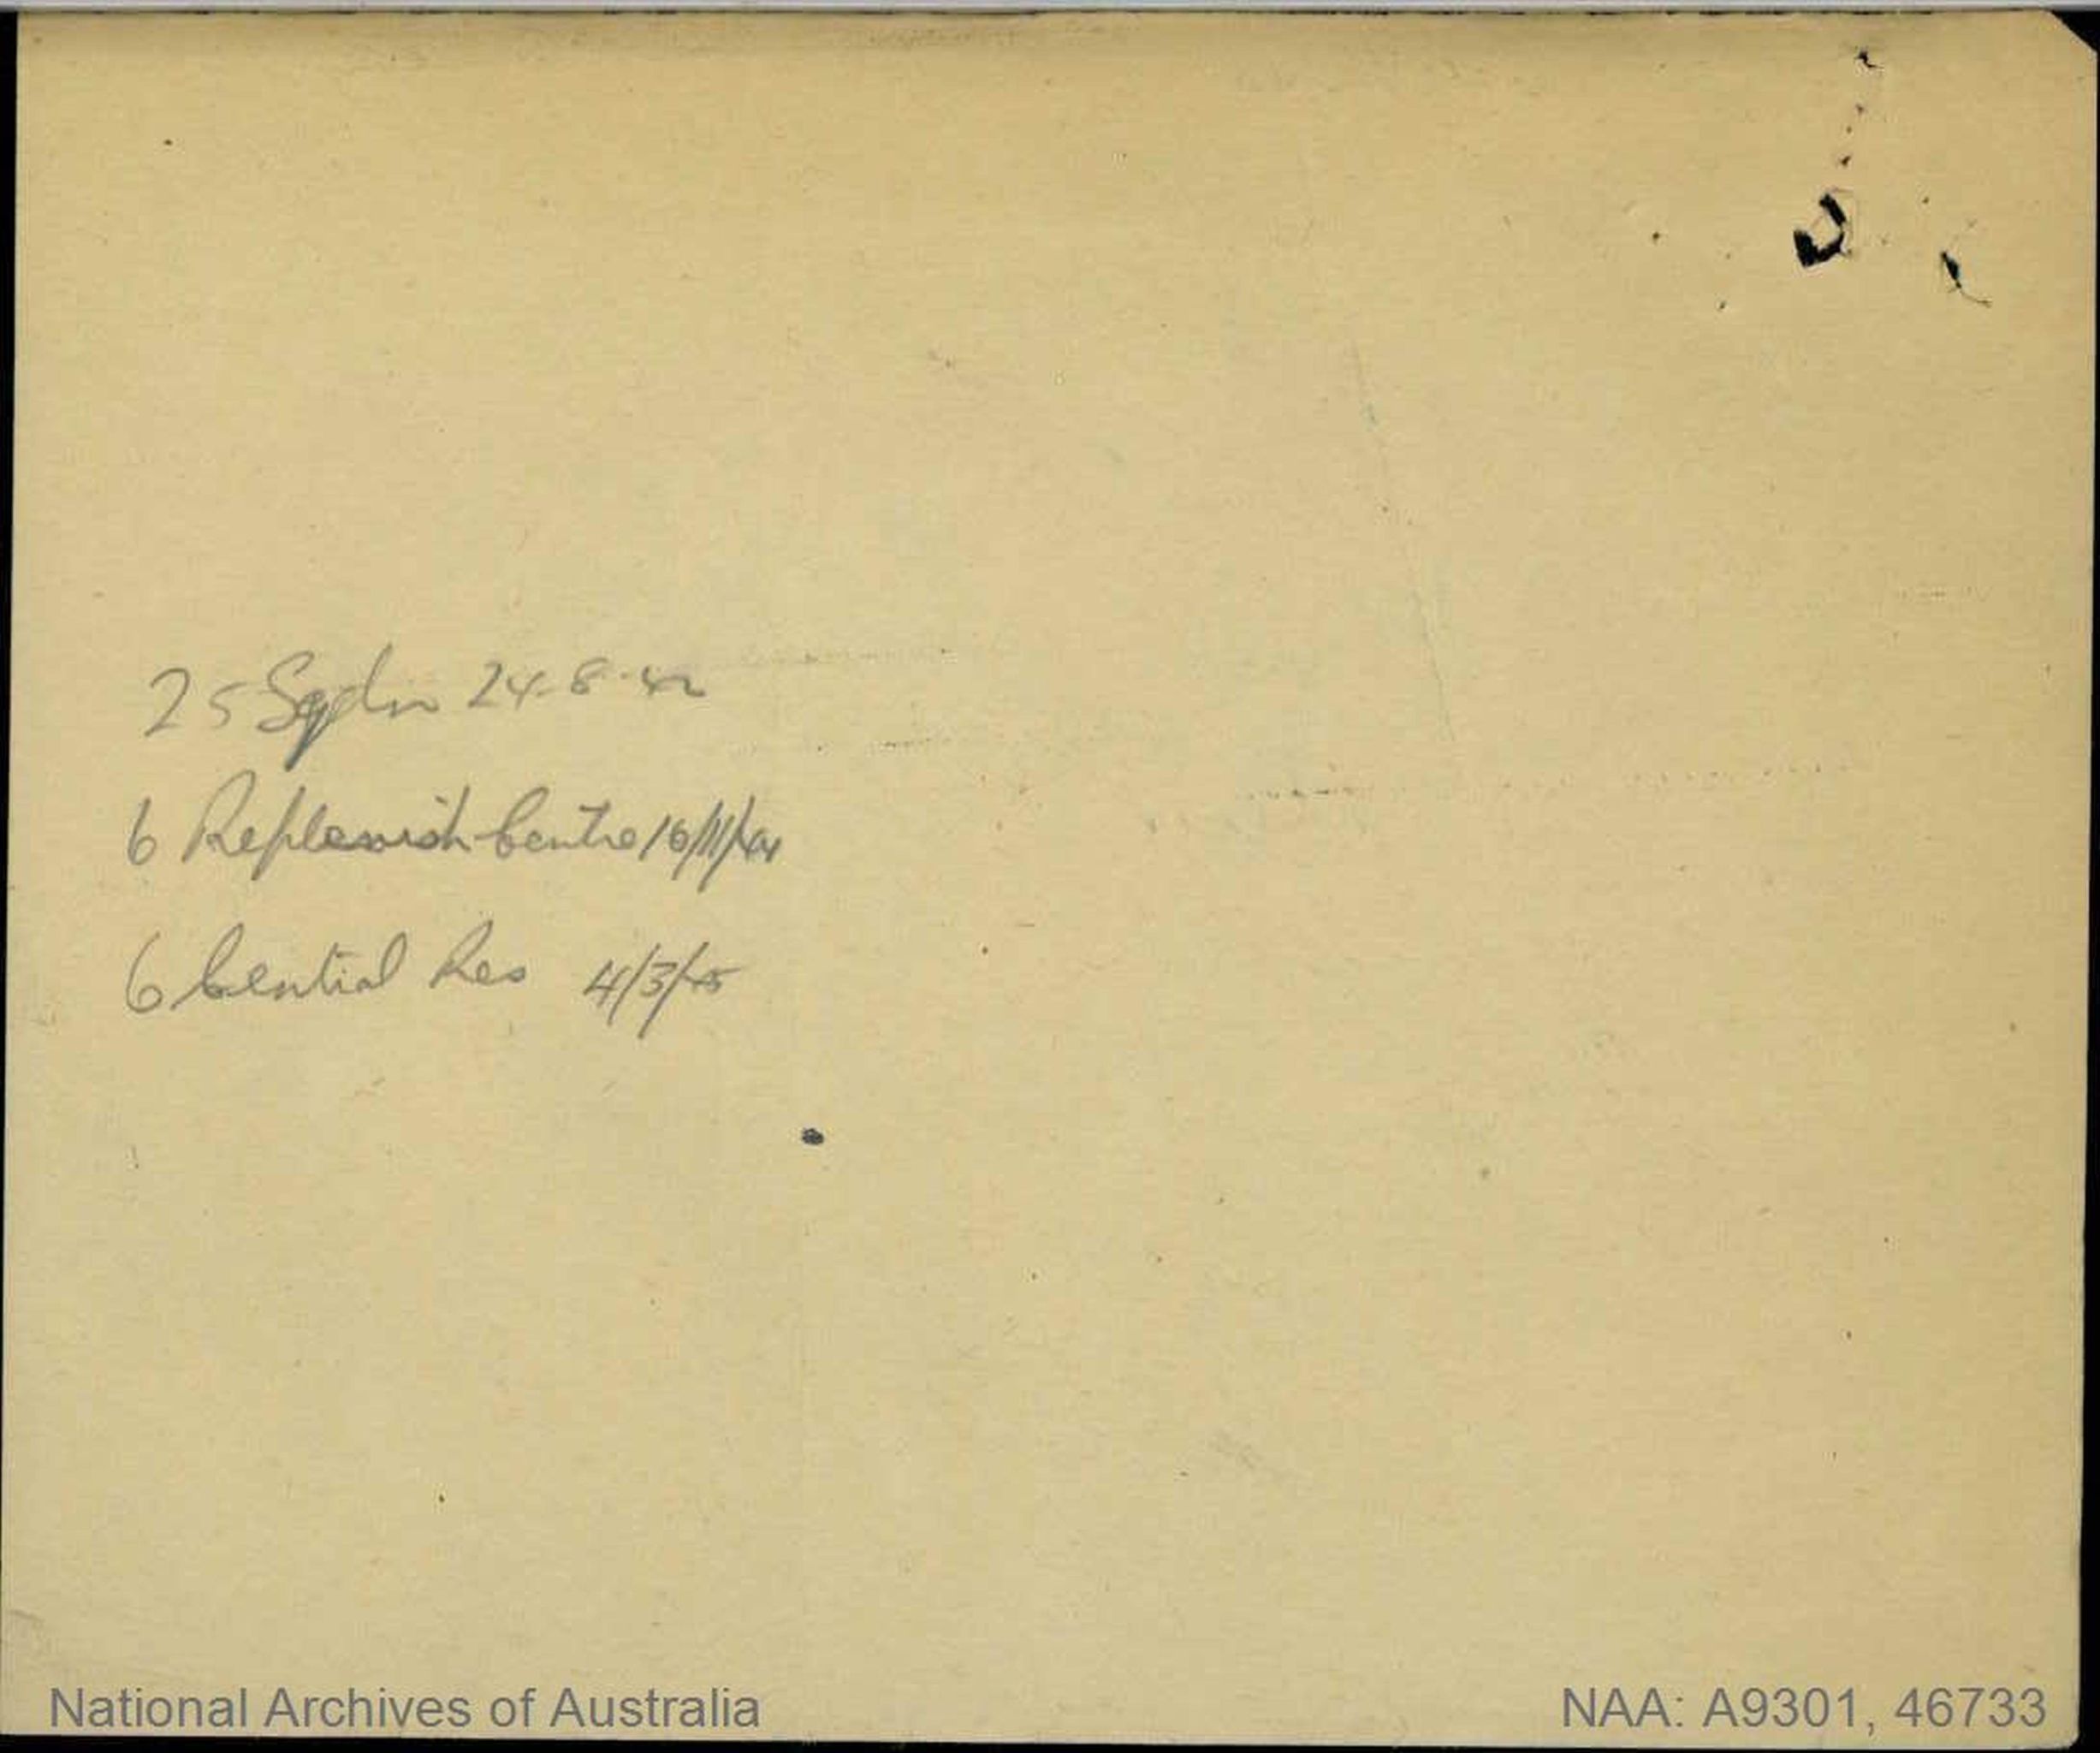 25 Sqdn 24-8-42
6 Replenish Centre 16/11/44
6 Central Res 4/3/45
National Archives of Australia
NAA: A9301, 46733